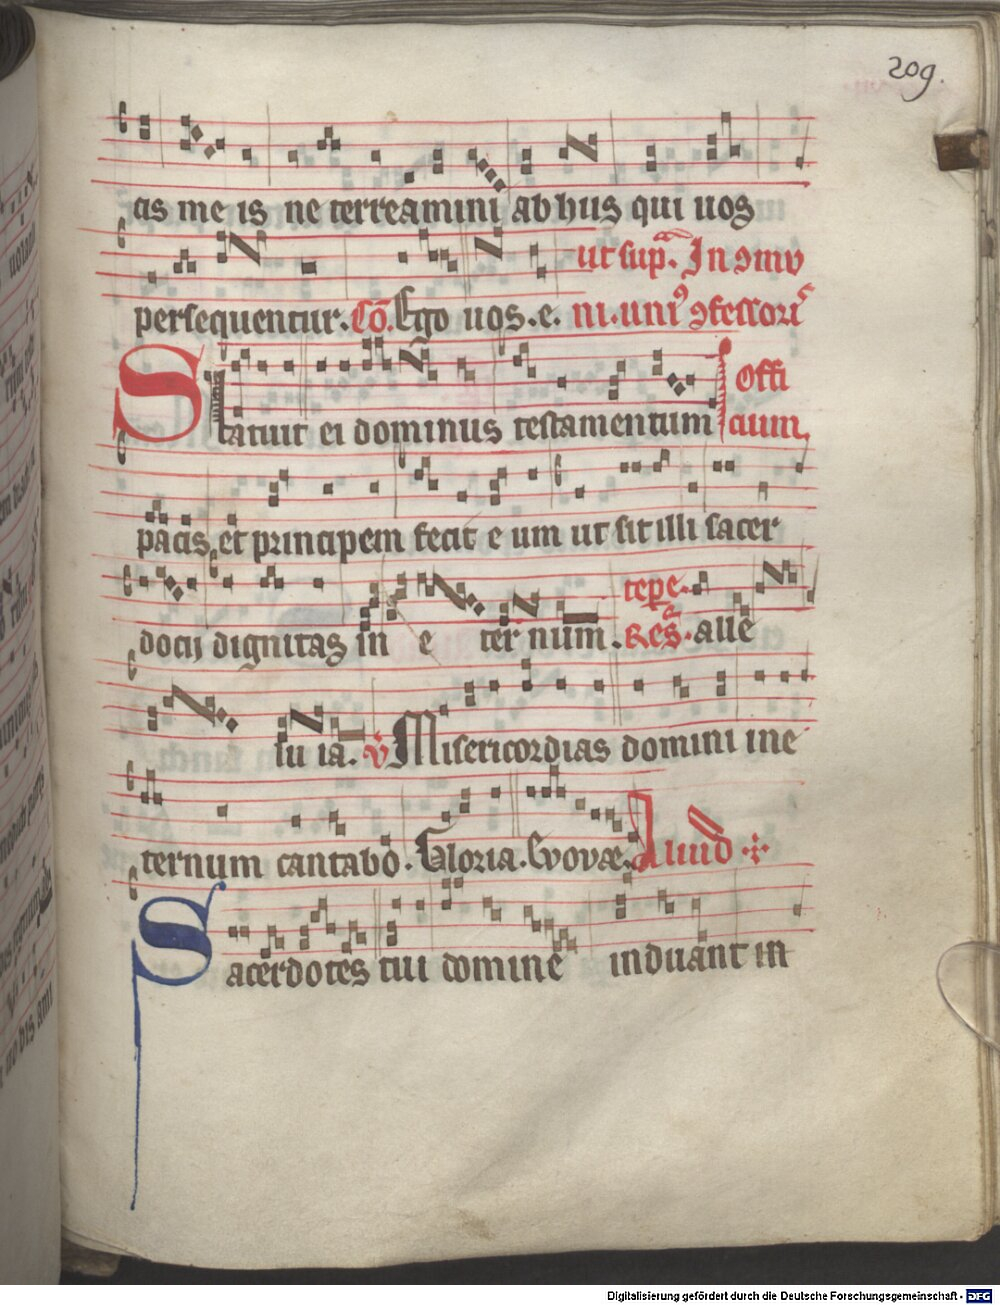 209.
cis me is ne terreamini ab hus qui uos
ut sup. In comu
persequentur. Co. Ego uos. e. ni. uni9 9fessoris
Statuit ei dominus testamentum offi
cium
pacis et principem fecit e um ut sit illi sacer
tepe.
docij dignitas in e ternum. Res. alle
lu ia. V Misericordias domini in e
ternum cantabo. Gloria. Evovae. Aliud
Sacerdotes tui domine induant in
Digitalisierung gefördert durch die Deutsche Forschungsgemeinschaft - DFG